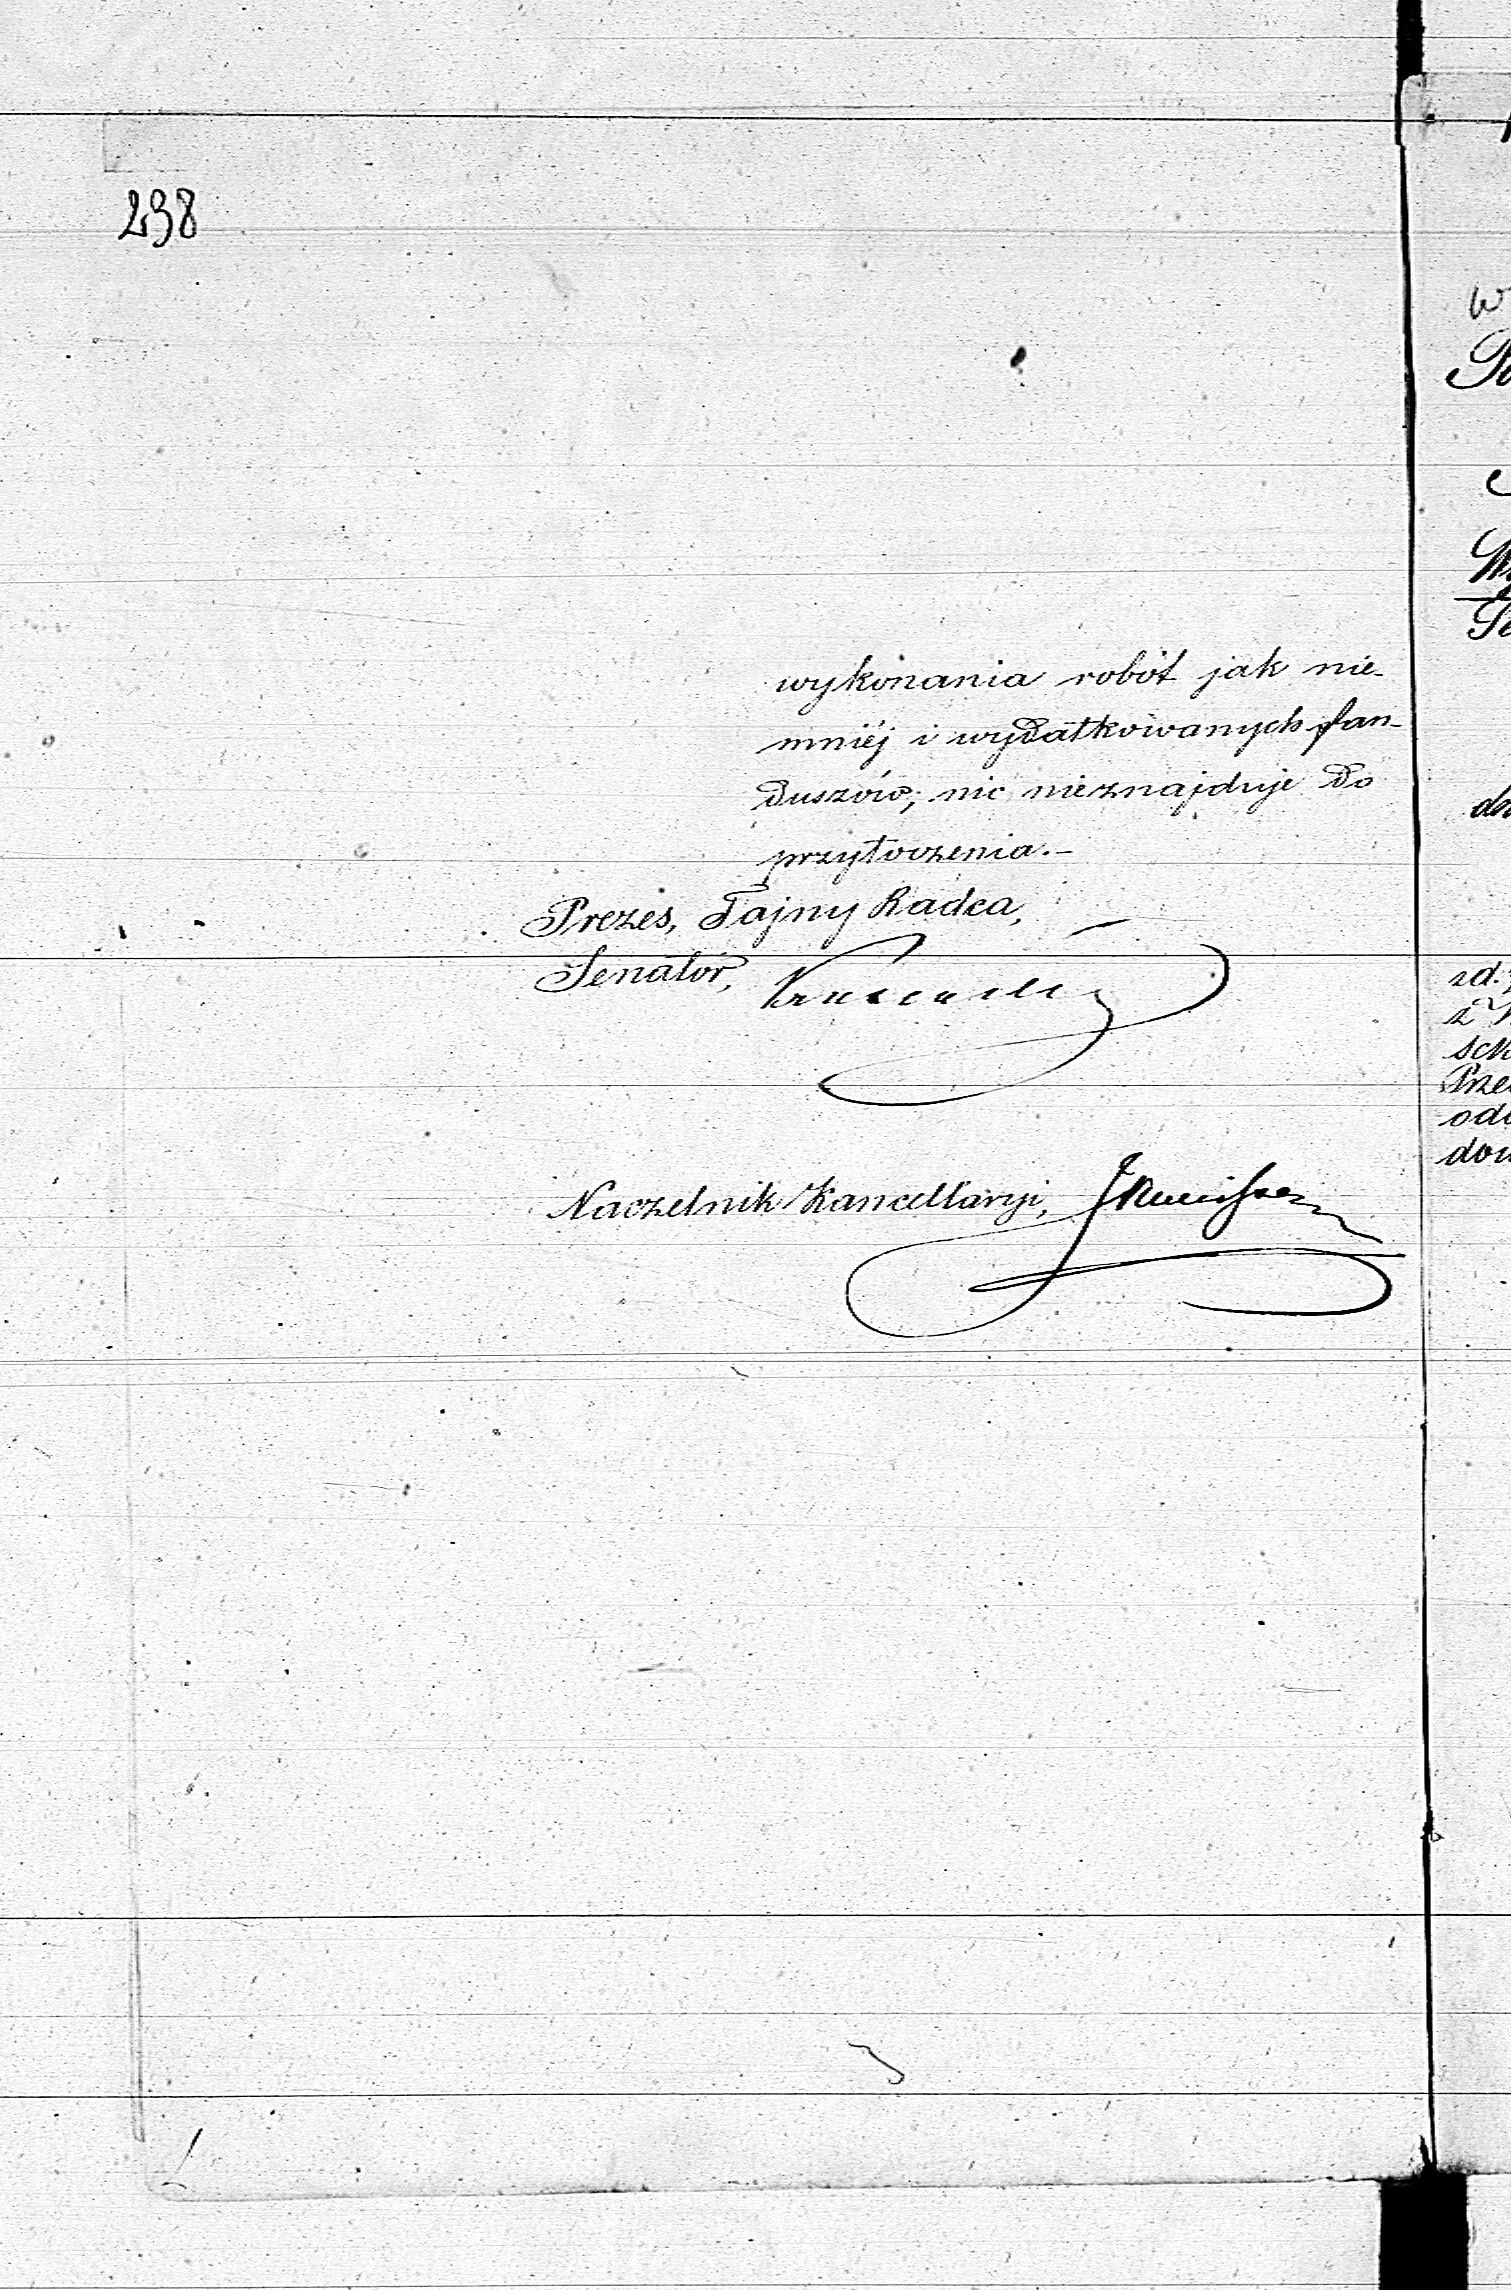 238
wykonania robót jak nie-
mniéj i wydatkowanych fun-
duszów, nic nieznajduje do
przytoczenia.-
Prezes, Tajny Radca,
Senator,
Naczelnik Kancellaryi,